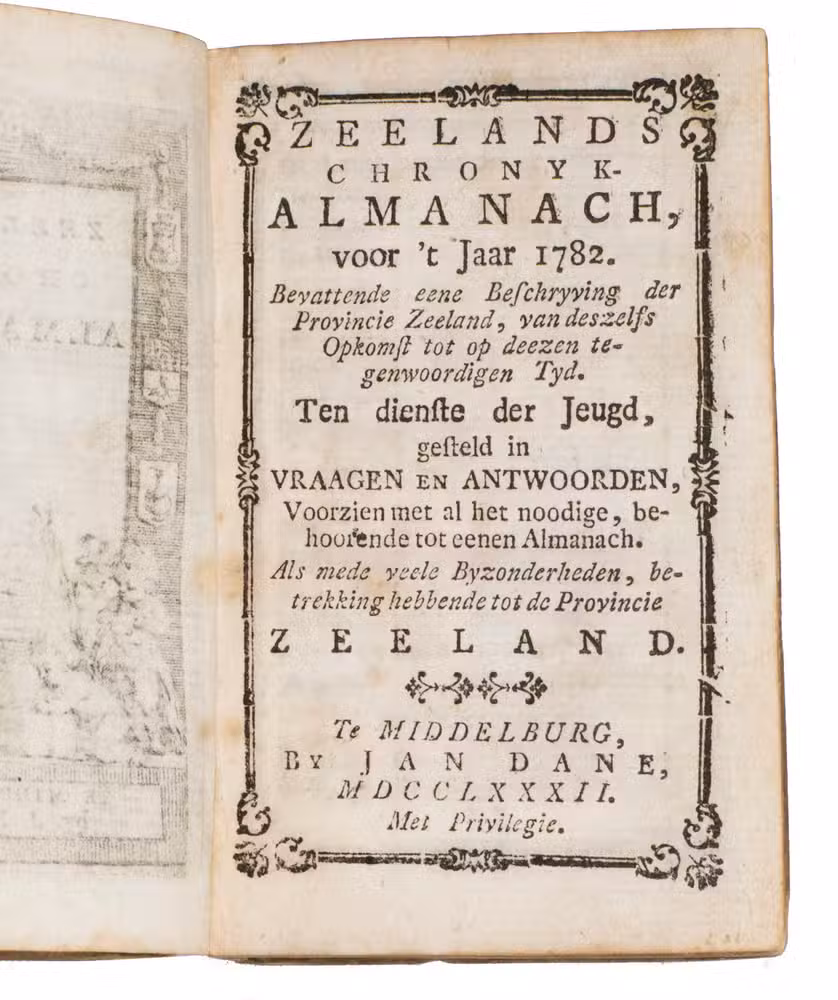 ZEELANDS
CHRONYK-
ALMANACH,
voor 't Jaar 1782.
Bevattende eene Beſchryving der
Provincie Zeeland, van deszelfs
Opkomſt tot op deezen te-
genwoordigen Tyd.
Ten dienſte der Jeugd,
geſteld in
VRAAGEN EN ANTWOORDEN,
Voorzien met al het noodige, be-
hoorende tot eenen Almanach.
Als mede veele Byzonderheden, be-
trekking hebbende tot de Provincie
ZEELAND.
Te MIDDELBURG,
BY JAN DANE,
MDCCLXXXII.
Met Privilegie.